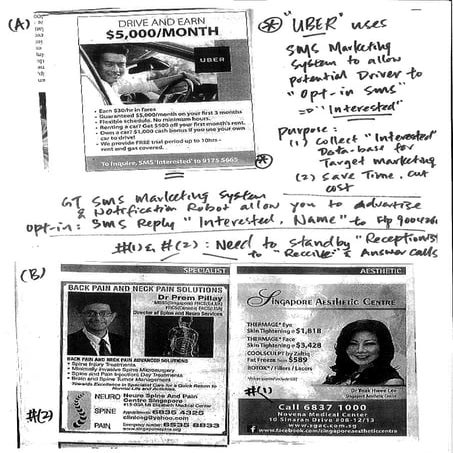 (A)
DRIVE AND EARN
$5,000/MONTH
UBER
• Earn $30/hr in fares
• Guaranteed $5,000/month on your first 3 months
• Flexible schedule. No minimum hours.
• Renting a car? Get $500 off your first month's rent.
• Own a car? $1,000 cash bonus if you use your own
car to drive!
• We provide FREE trial period up to 10hrs -
rent and gas covered.
To inquire, SMS 'Interested' to 9175 5665
"UBER" uses
SMS Marketing
System to allow
potential Driver to
"Opt-in SMS"
"Interested"
purpose:
(1) Collect "Interested"
Data-base for
Target marketing
(2) Save Time, cut
cost
GT SMS Marketing System
& Notification Robot allow you to Advertise
opt-in: SMS Reply "Interested, Name" to Hp
#(1) & #(2): Need to standby "Receptionist"
to "Receive" & Answer calls
(B)
SPECIALIST
BACK PAIN AND NECK PAIN SOLUTIONS
Dr Prem Pillay
Director of Spine and Neuro Services
BACK PAIN AND NECK PAIN ADVANCED SOLUTIONS
• Spine Injury Treatments
• Minimally Invasive Spine Microsurgery
• Spine and Pain Injection/Day Treatments
• Brain and Spine Tumor Management
Towards Excellence in Specialist Care for a Quick Return to
Normal Life and Activities.
NEURO
SPINE
PAIN
Neuro Spine And Pain
Centre Singapore
Appointment 6835 4325
Emergency number 6535 8833
#(2)
AESTHETIC
SINGAPORE AESTHETIC CENTRE
THERMAGE® Eye
Skin Tightening @ $1,818
THERMAGE® Face
Skin Tightening @ $3,428
COOLSCULPT by Zeltiq
Fat Freeze from $589
BOTOX® / Fillers / Lasers
#(1)
Singapore Aesthetic Centre
Call 6837 1000
Novena Medical Center
10 Sinaran Drive #08-12/13
www.sgac.com.sg
www.facebook.com/singaporeaestheticcentre